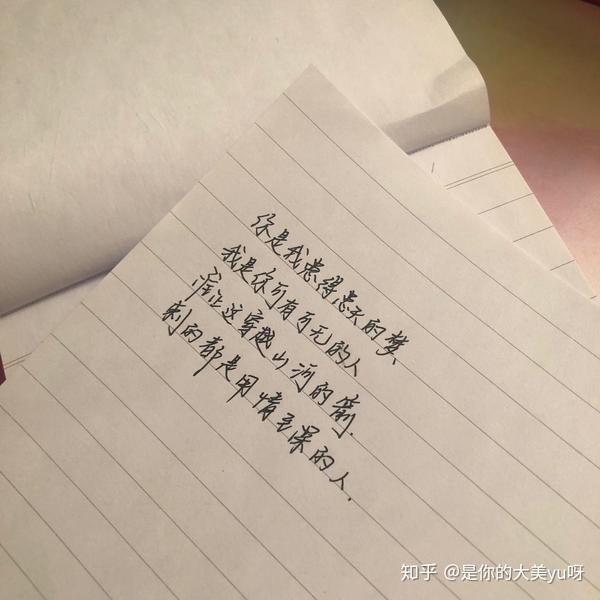 你是我患得患失的梦
我是你可有可无的人
毕竟这穿越山河的箭.
刺的都是用情至深的人.
知乎 @是你的大美yu呀